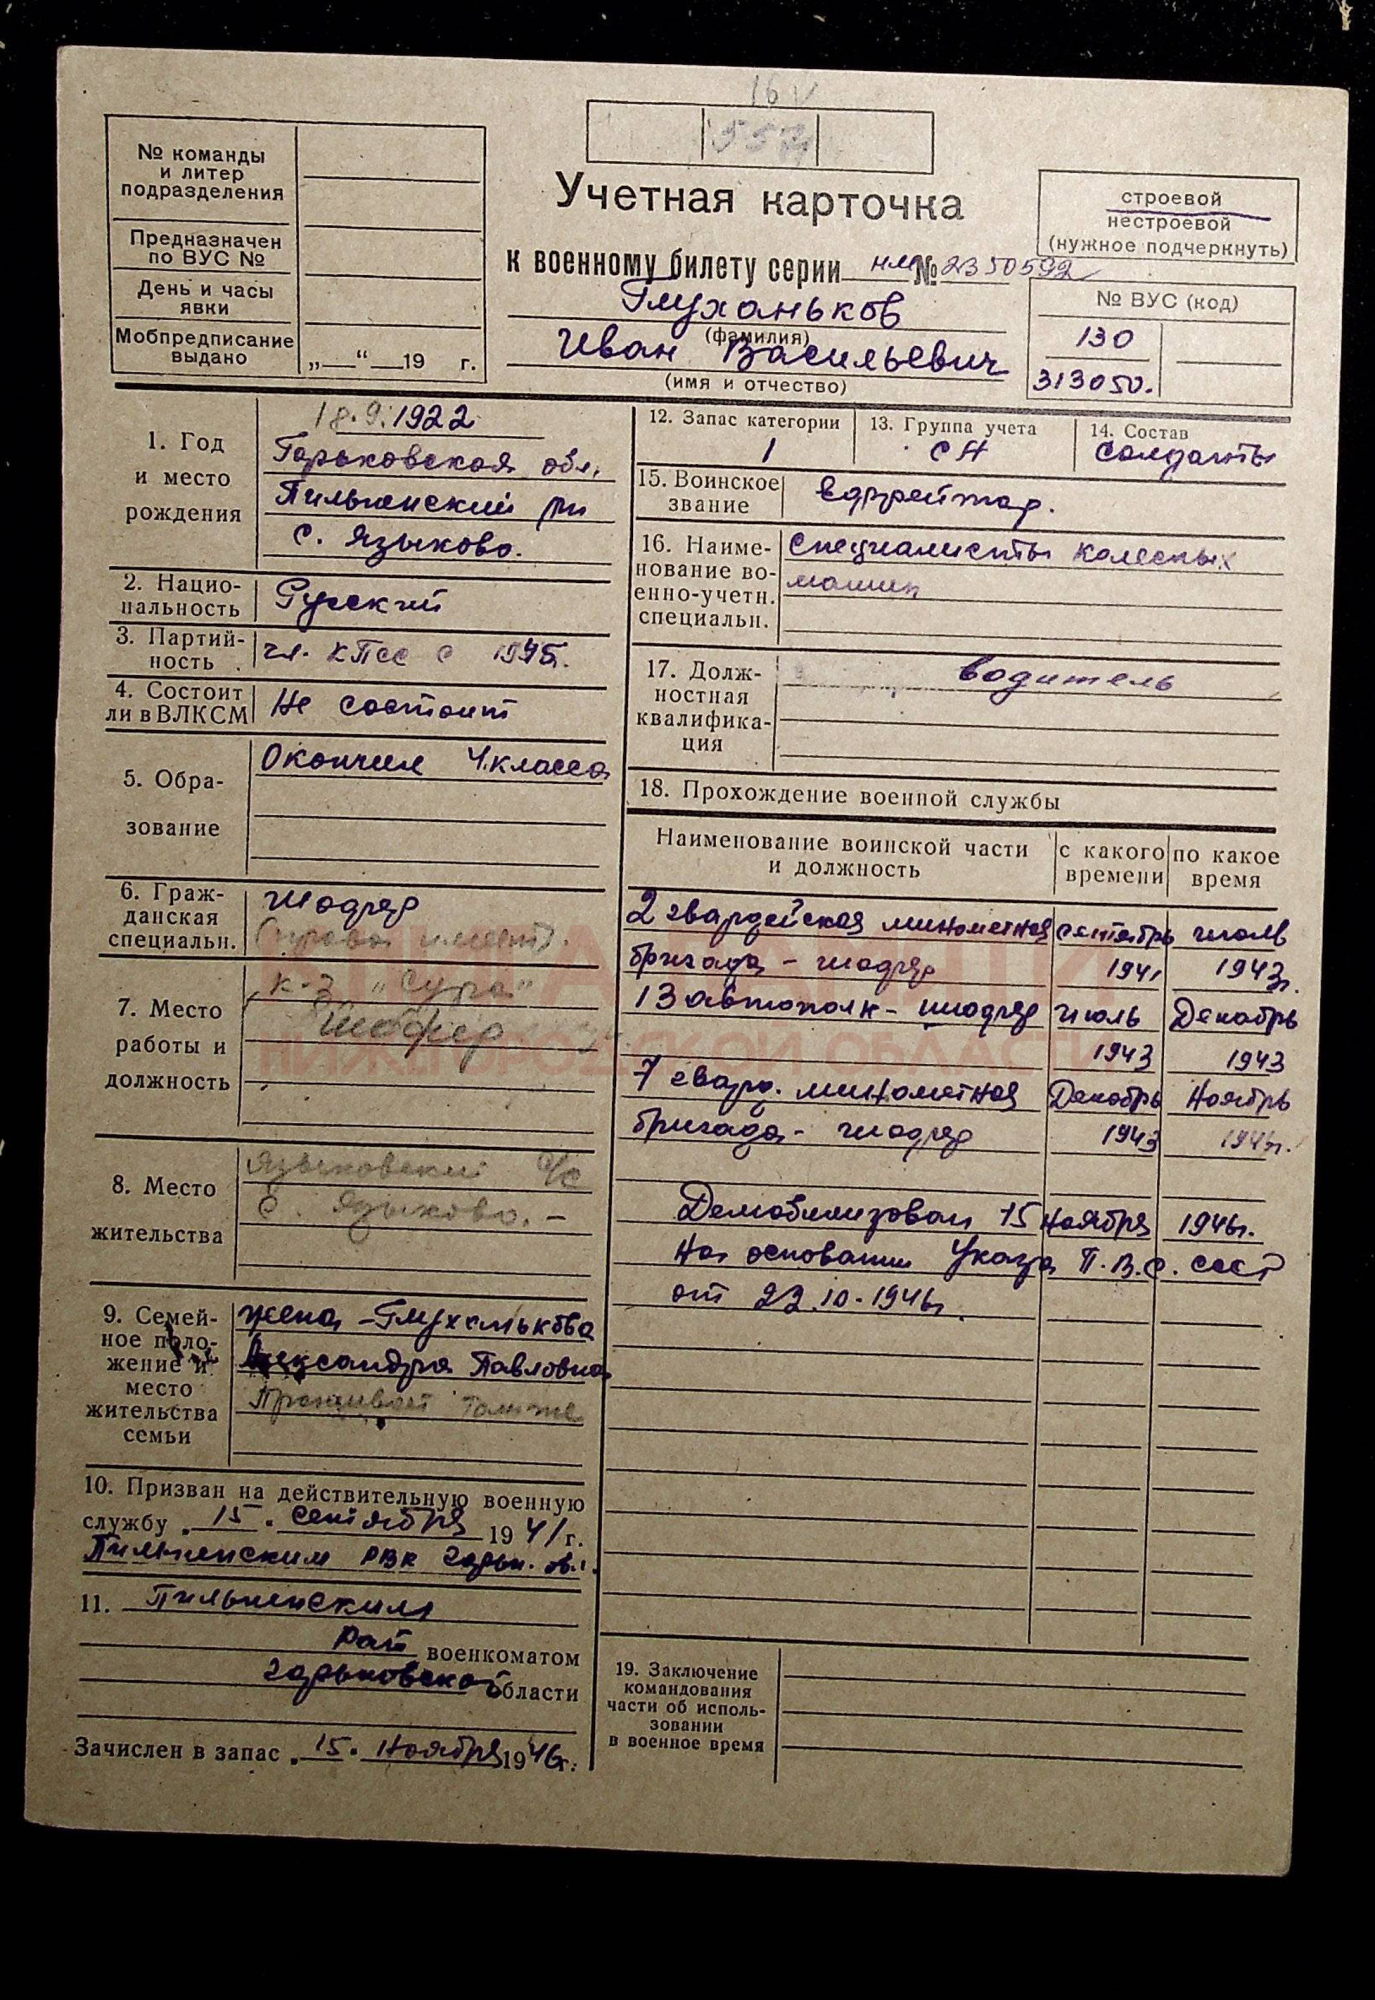 16
557
№ команды
и литер
подразделения
Предназначен
по ВУС №
День и часы
явки
Мобпредписание
выдано
„ “ 19 г.
Учетная карточка
к военному билету серии НМ № 2350592
Глуханьков
(фамилия)
Иван Васильевич
(имя и отчество)
строевой
нестроевой
(нужное подчеркнуть)
№ ВУС (код)
130
313050.
1. Год
и место
рождения
18.9.1922
Горьковская обл.
Пильненский рн
с. Языково.
2. Нацио-
нальность
Русский
3. Партий-
ность
чл. КПСС с 1945г.
4. Состоит
ли в ВЛКСМ
Не состоит
5. Обра-
зование
Окончил 4 класса
6. Граж-
данская
специальн.
Шофер
(права имеет).
7. Место
работы и
должность
к-з „Сура"
Шофер
8. Место
жительства
Языковский с/с
с. Языково. –
9. Семей-
ное поло-
жение и
место
жительства
семьи
жена – Глуханькова
Александра Павловна
Проживает там же
10. Призван на действительную военную
службу „15" сентября 1941 г.
Пильненским РВК Горьк. обл.
11. Пильненским
Рай военкоматом
Горьковской области
Зачислен в запас „15" Ноября 1946 г.
12. Запас категории
1
13. Группа учета
СА
14. Состав
Солдаты
15. Воинское
звание
Ефрейтор.
16. Наиме-
нование во-
енно-учетн.
специальн.
Специалисты колесных
машин
17. Долж-
ностная
квалифика-
ция
водитель
18. Прохождение военной службы
Наименование воинской части
и должность
с какого
времени
по какое
время
2 гвардейская минометная сентябрь июль
бригада – шофер 1941 1943г.
13 автополк – шофер июль Декабрь
1943 1943
7 гвард. минометная Декабрь Ноябрь
бригада – шофер 1943 1946г.
Демобилизован 15 Ноября 1946г.
На основании Указа П.В.С. СССР
от 22.10.1946г.
19. Заключение
командования
части об исполь-
зовании
в военное время
КНИГА ПАМЯТИ
НИЖЕГОРОДСКОЙ ОБЛАСТИ